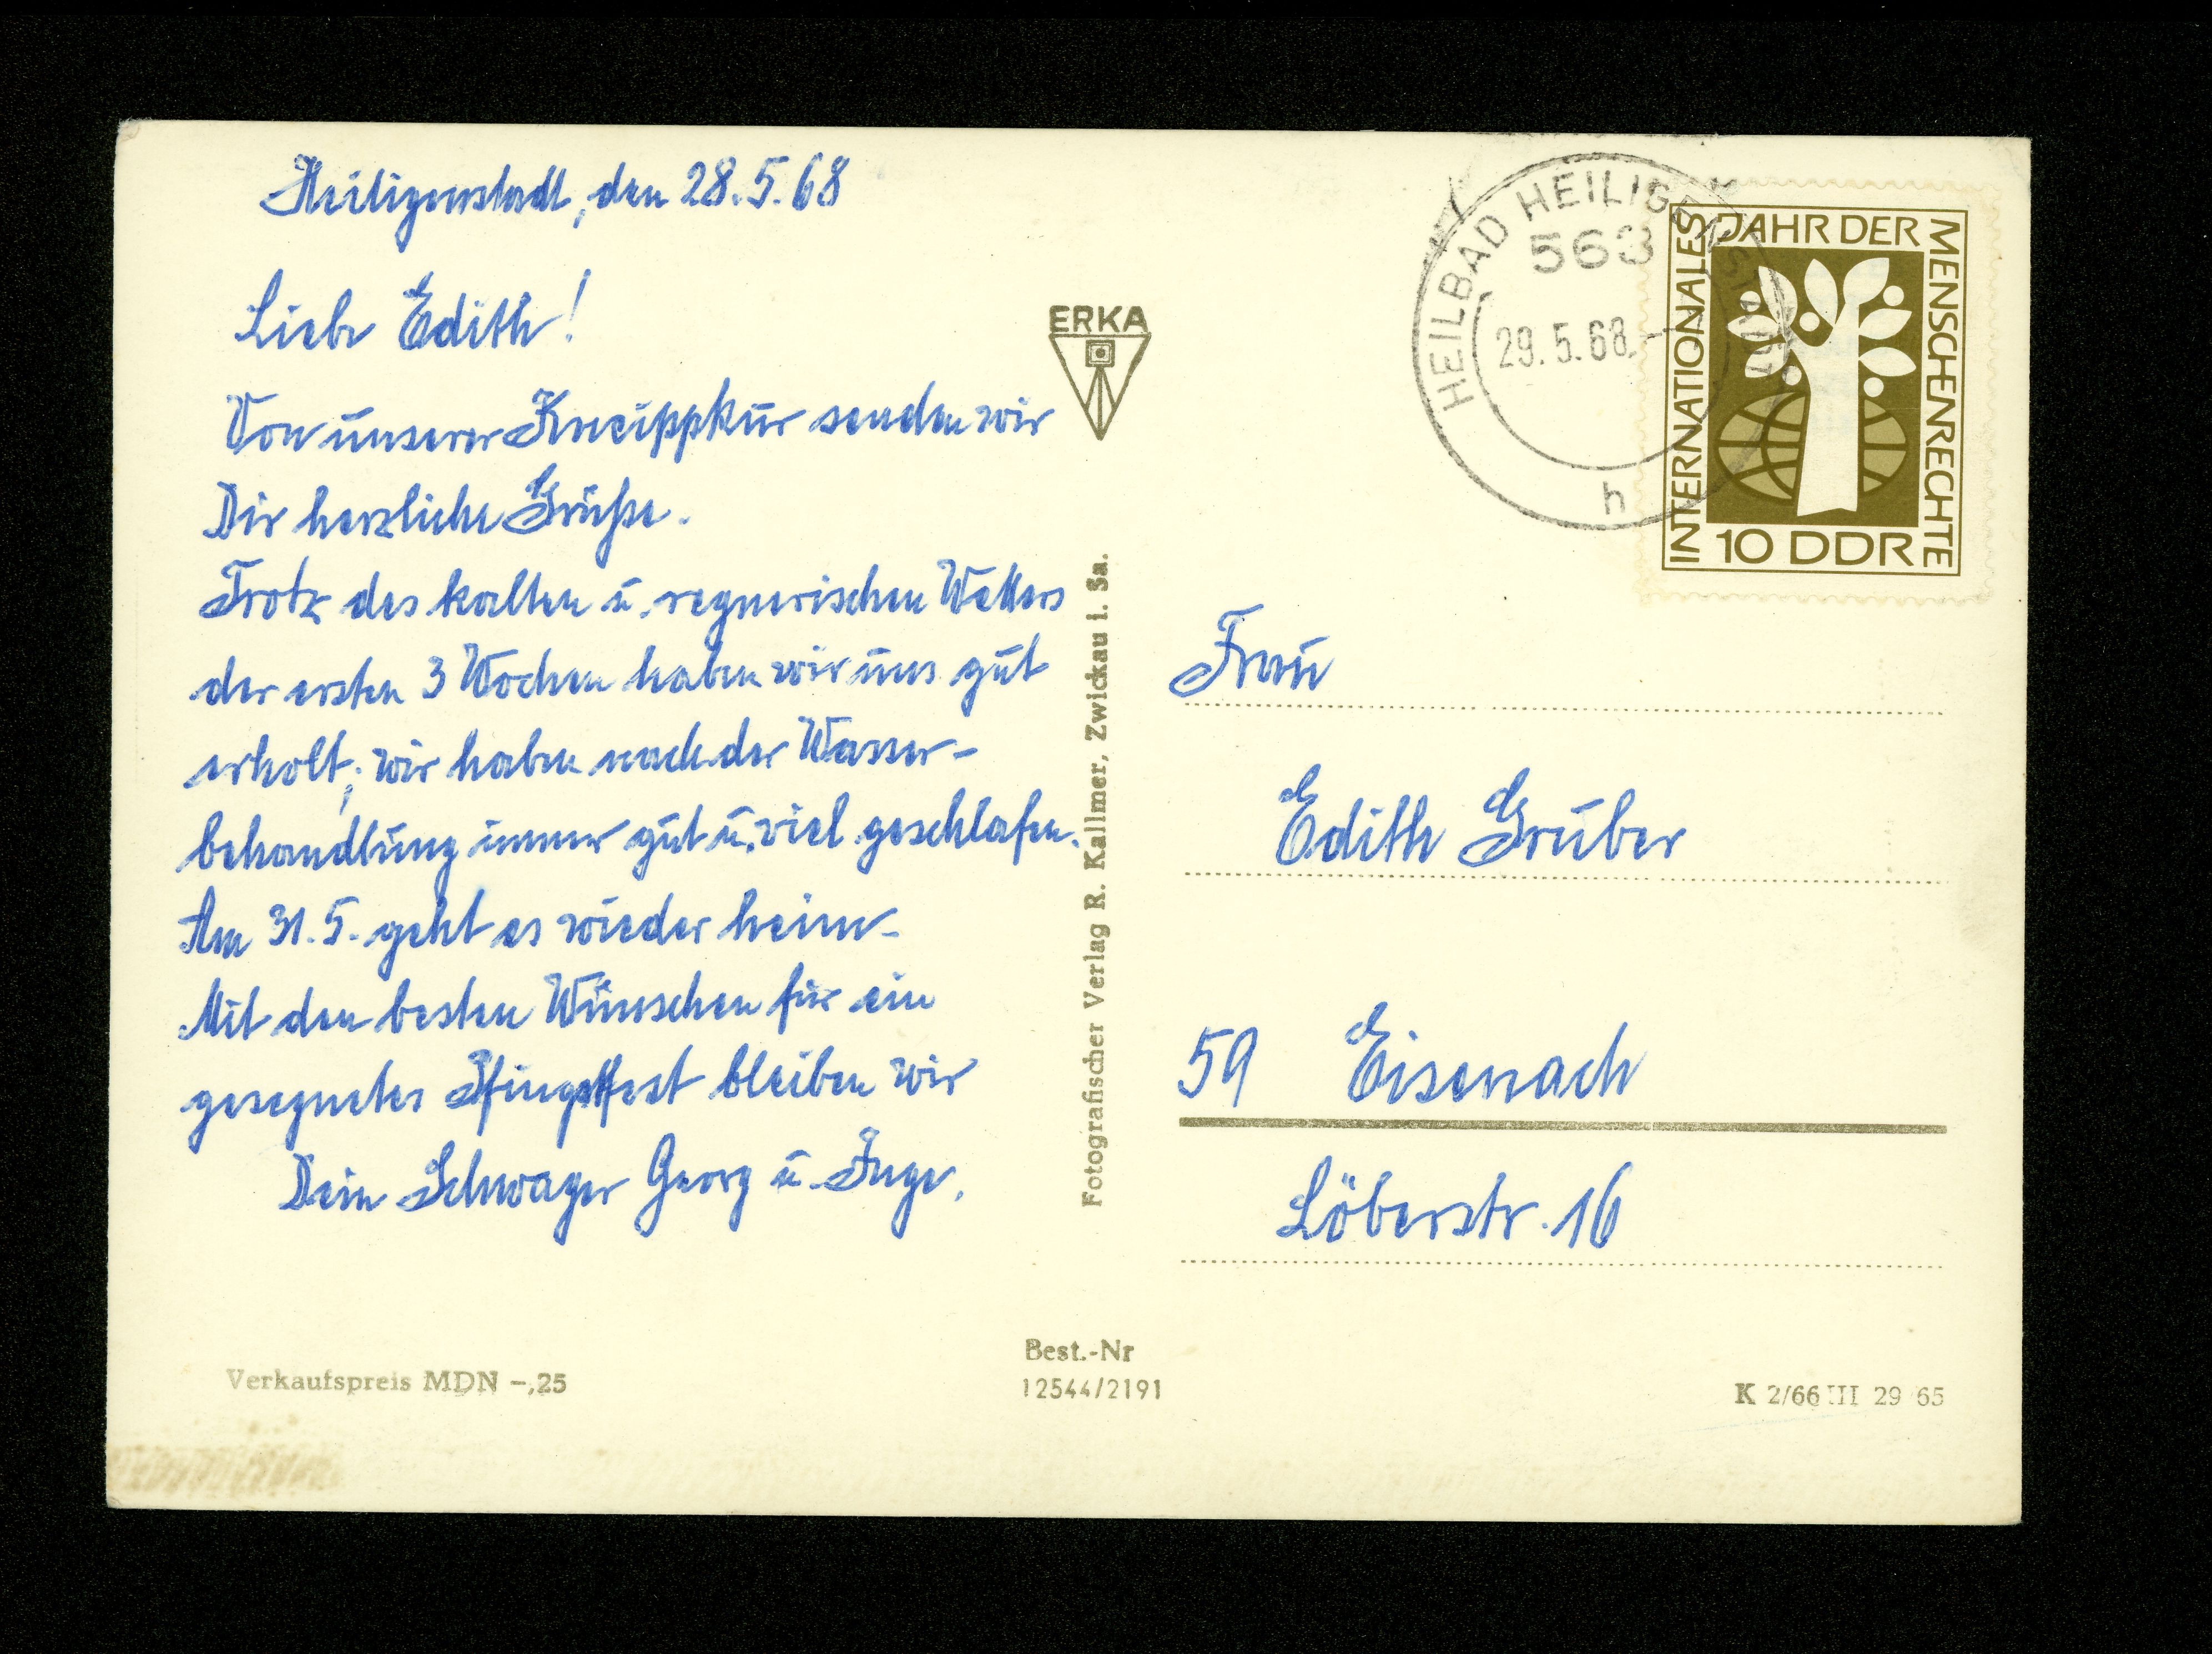 Heiligenstadt, den 28.5.68
Liebe Edith!
Von unserer Kneippkur senden wir
Dir herzliche Grüße.
Trotz des kalten u. regnerischen Wetters
der ersten 3 Wochen haben wir uns gut
erholt; wir haben nach der Wasser-
behandlung immer gut u. viel geschlafen.
Am 31.5. geht es wieder heim.
Mit den besten Wünschen für ein
gesegnetes Pfingstfest bleiben wir
Dein Schwager Georg u. Inge.
Verkaufspreis MDN -,25
ERKA
Fotografischer Verlag R. Kallmer, Zwickau i. Sa.
Best.-Nr
12544/2191
HEILBAD HEILIGENSTADT
563
29.5.68.-
h
INTERNATIONALES JAHR DER MENSCHENRECHTE
10 DDR
Frau
Edith Gruber
59 Eisenach
Löberstr. 16
K 2/66 III 29 65